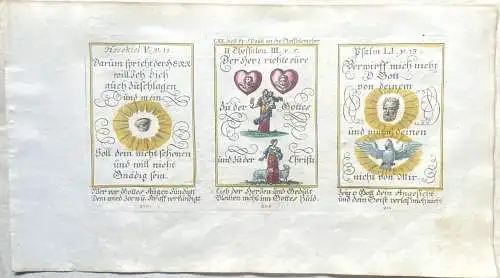 Hesekiel V. v. 11
Darum spricht der HERR
will Ich Dich
auch zuschlagen
und mein
Soll dein nicht schonen
und will nicht
Gnädig sein.
Wer vor Gottes Augen sündigt
Dem wird Zorn u. Straff verkündigt
II Thessalon. III. v. 5.
Der Herr richte eure
Zu der Gottes
und zu der Christi
Lieb der Herzen und Gedult
Bleiben nicht inn Gottes Huld
Psalm LI. v. 13.
Verwirff mich nicht
O Gott
von deinem
und nimm deinen
nicht von Mir.
Zeig o Gott dein Angesicht
und dein Geist verlass mich nicht